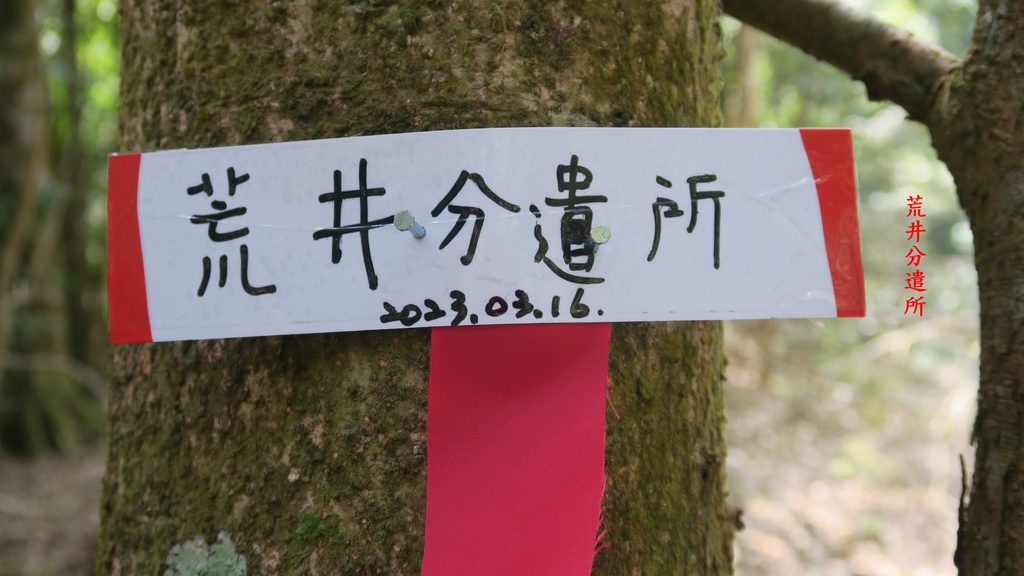 荒井分遣所
2023.03.16.
荒井分遣所